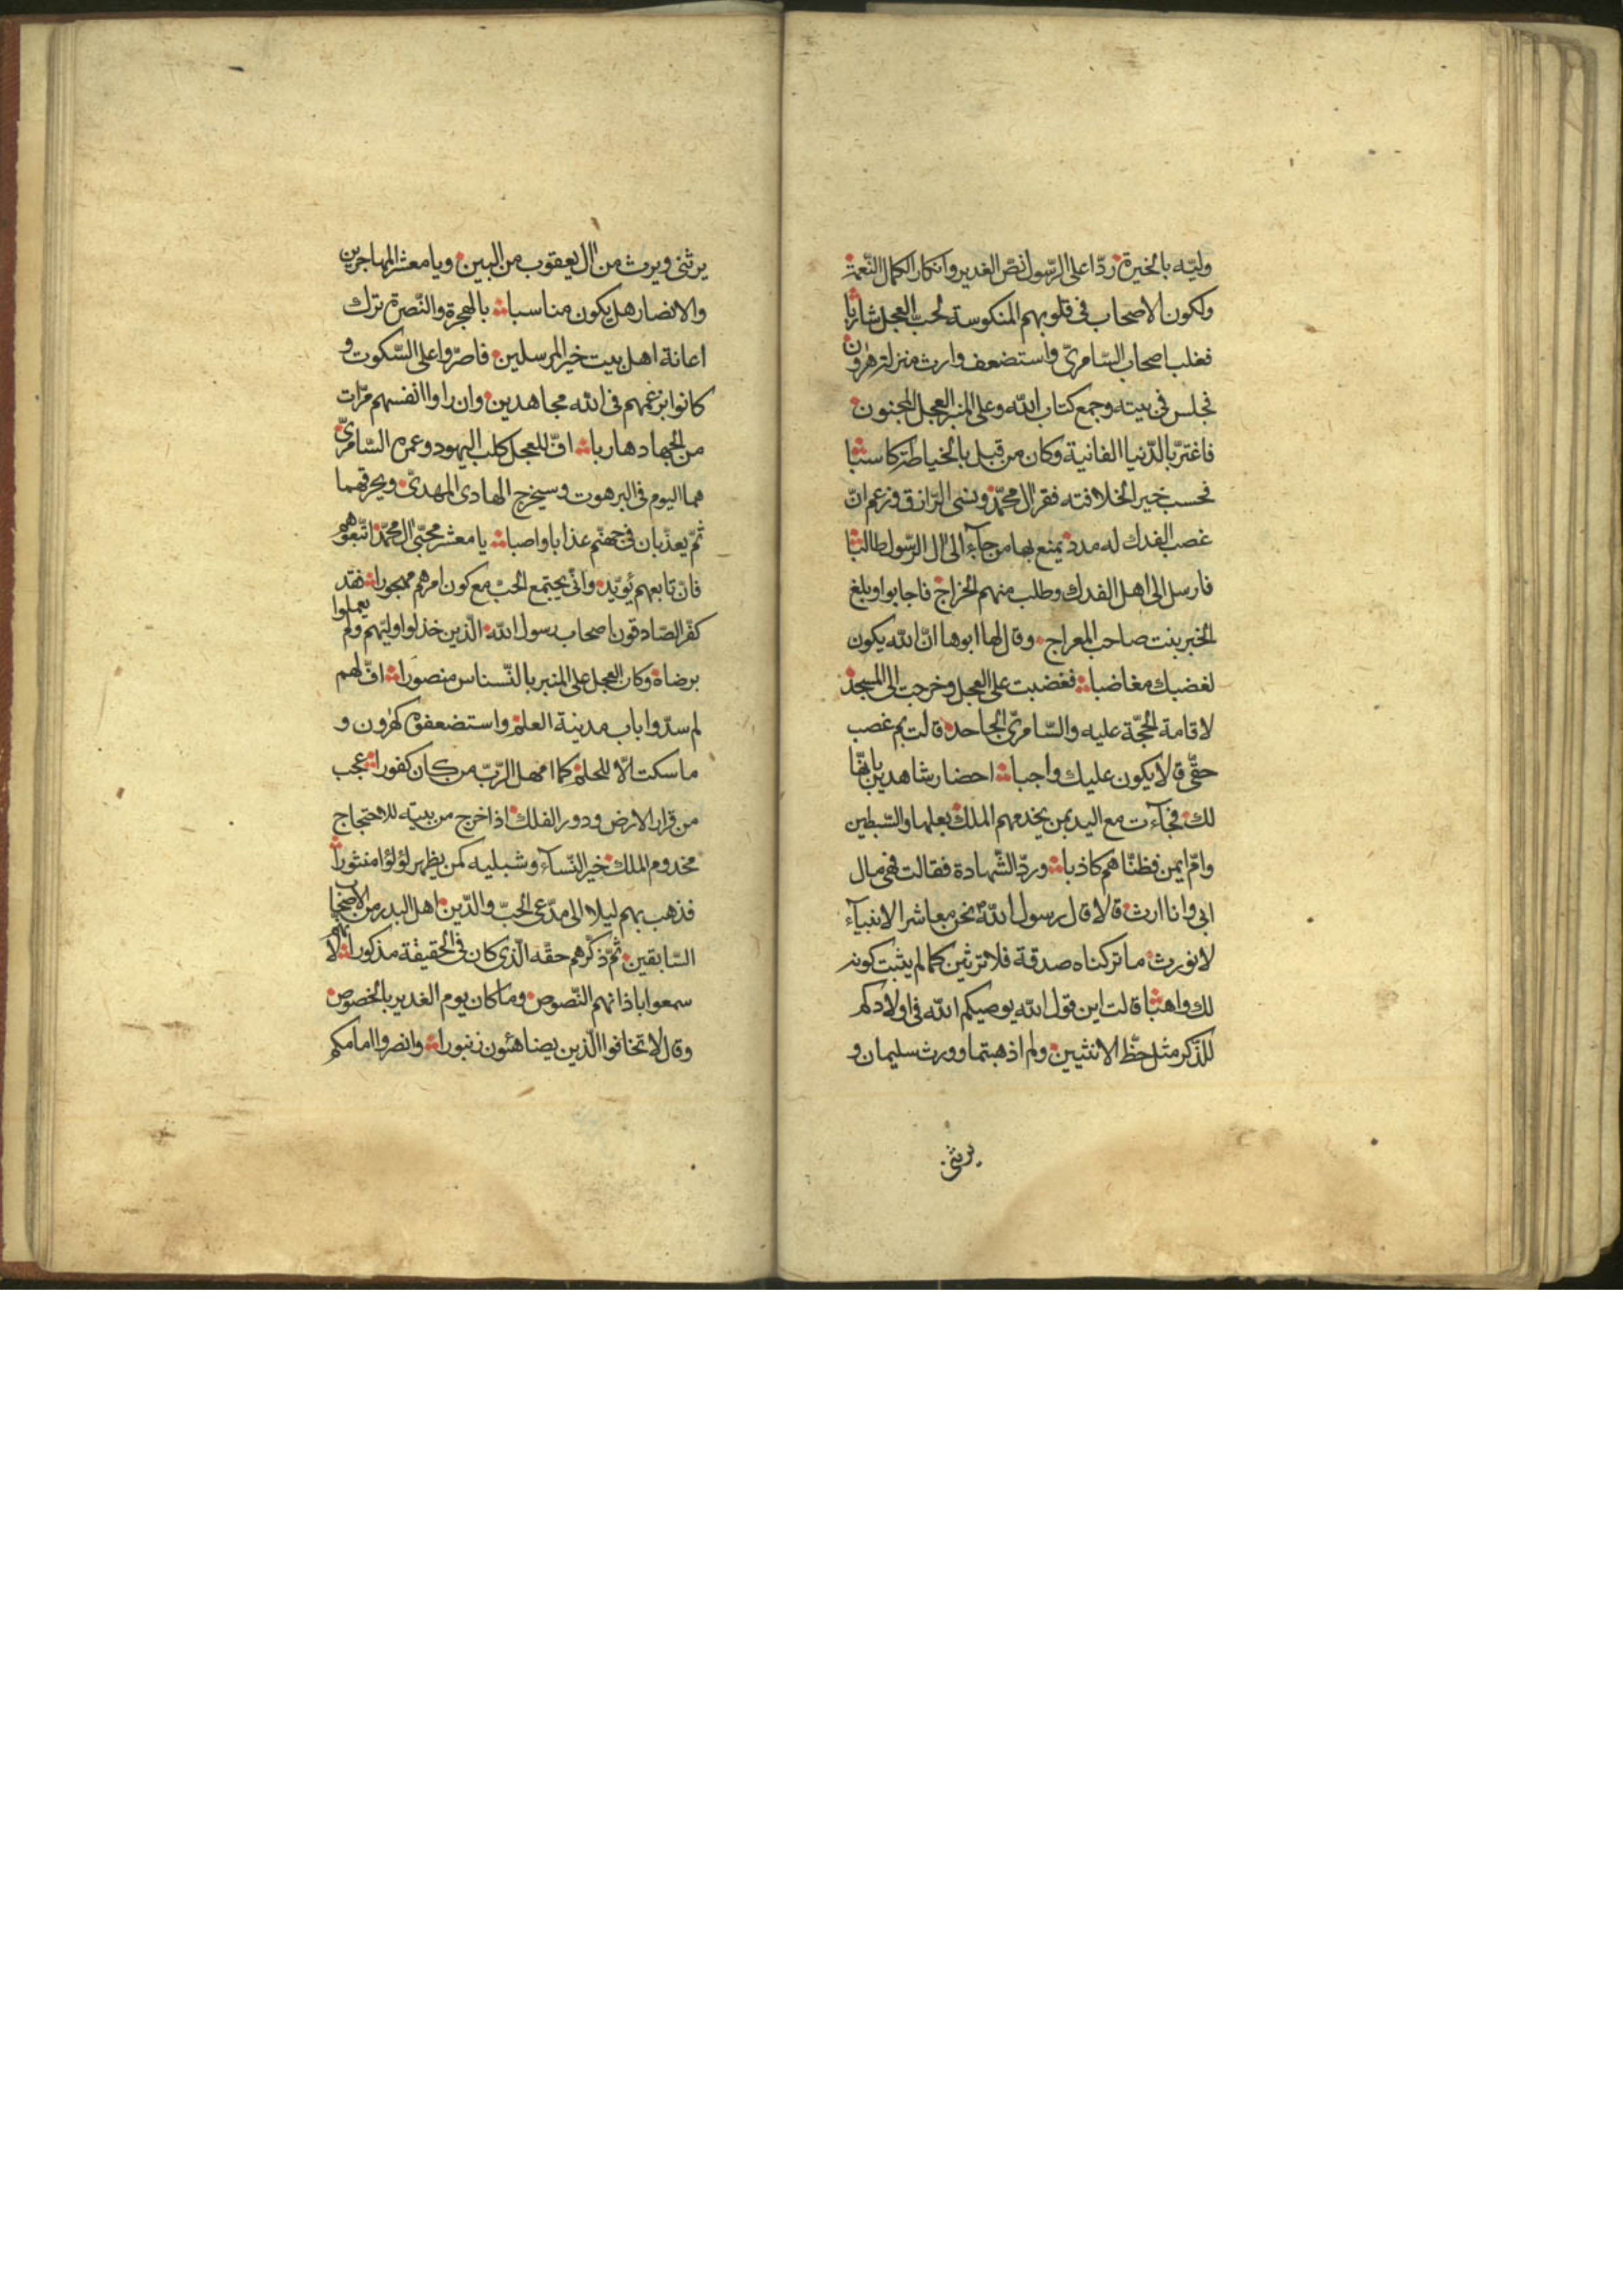 وليّه بالخيرة ردّا على الرّسول نصّ الغدير وانكار اكمال النّعمة
ولكون الاصحاب فى قلوبهم المنكوسة لحبّ العجل شاربا
فغلب اصحاب السّامرىّ واستضعف وارث منزلة هرون
فجلس فى بيته وجمع كتاب الله وعلى المنبر العجل المجنون
فاغترّ بالدّنيا الفانية وكان من قبل بالخياطة كاسبا
فحسب خير الخلافته فقر ال محمّد ونسى الرّازق وزعم انّ
غصب الفدك له مدد يمنع بها من جآء الى ال الرّسول طالبا
فارسل الى اهل الفدك وطلب منهم الخراج فاجابوا وبلغ
الخبر بنت صاحب المعراج وقال لها ابوها انّ الله يكون
لغضبك مغاضبا فغضبت على العجل وخرجت الى المسجد
لاقامة الحجّة عليه والسّامرىّ الجاحد قالت بم غصب
حقّى قالا يكون عليك واجبا احضار شاهدين بانّها
لك فجآءت مع اليد بمن يخدمهم الملك بعلها والسّبطين
وامّ ايمن فظنّاهم كاذبا وردّ الشّهادة فقالت فهى مال
ابى وانا ارث قالا قال رسول الله نحن معاشر الانبيآء
لا نورث ما تركناه صدقة فلا ترثين كما لم يثبت كونه
لك واهبا قالت اين قول الله يوصيكم الله فى اولادكم
للذّكر مثل حظّ الانثيين ولم اذهبتما وورث سليمان و
يرثنى
يرثنى ويرث من ال يعقوب من البين ويا معشر المهاجرين
والانصار هل يكون مناسبا بالهجرة والنّصرة ترك
اعانة اهل بيت خير المرسلين فاصرّوا على السّكوت و
كانوا بزعمهم فى الله مجاهدين وان راوا انفسهم مرّات
من الجهاد هاربا افّ للعجل كلب اليهود وعمر السّامرىّ
هما اليوم فى البرهوت وسيخرج الهادى المهدىّ ويحرقهما
ثمّ يعذّبان فى جهنّم عذابا واصبا يا معشر محبّى ال محمّد اتّبعوهم
فانّ تابعهم يؤيّد وانّى يجتمع الحبّ مع كون امرهم مهجورا فقد
كفّر الصّادقون اصحاب رسول الله الّذين خذلوا وليّهم ولم يعملوا
برضاه وكان العجل على المنبر بالنّسناس منصورا افّ لهم
لم سدّوا باب مدينة العلم واستضعفوه كهرون و
ما سكت الّا للحلم كما امهل الرّبّ من كان كفورا عجب
من قرار الارض ودور الفلك اذا خرج من بيته للاحتجاج
مخدوم الملك خير النّسآء وشبليه كمن يظهر لؤلؤا منثورا
فذهب بهم ليلا الى مدّعى الحبّ والدّين اهل البدر من الاصحاب
السّابقين ثمّ ذكّرهم حقّه الّذى كان فى الحقيقة مذكورا
سمعوا باذانهم النّصوص وما كان يوم الغدير بالخصوص
وقال لا تخافوا الّذين يضاهئون زنبورا وانصروا امامكم